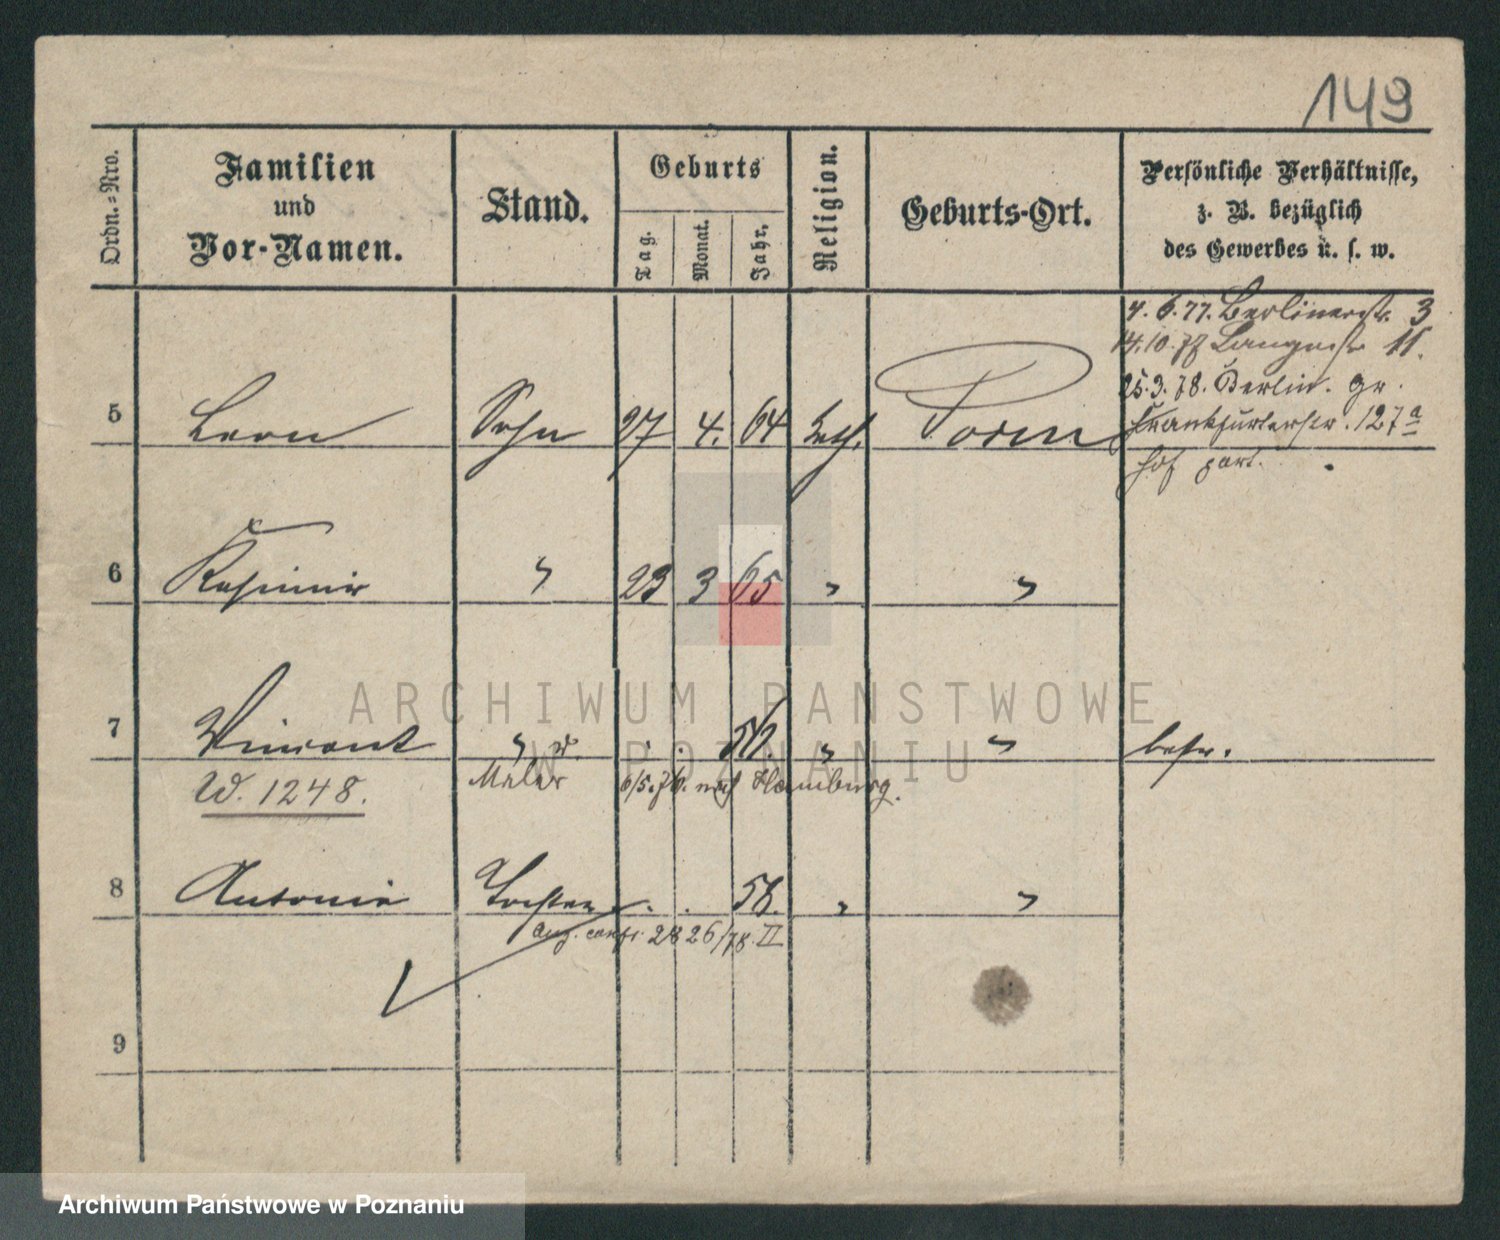 149
Ordn.=Nro.
Familien
und
Vor-Namen.
Stand.
Geburts
Tag.
Monat.
Jahr.
Religion.
Geburts-Ort.
Persönliche Verhältnisse,
z. B. bezüglich
des Gewerbes u. s. w.
4. 6. 77. Berlinerstr. 3
14. 10. 77 Langestr 11.
25. 3. 78. Berlin. gr.
Frankfurterstr. 127a
hof part.
5 Leon Sohn 27 4. 64 kath. Posen
6 Kasimir " 23 3 65 " "
7 Vincent " . . 56. " "
W. 1248. Maler 6/5. 76. nach Hamburg.
8 Antonie Tochter . . 58. " "
26/78 II
9
ARCHIWUM PAŃSTWOWE
W POZNANIU
Archiwum Państwowe w Poznaniu